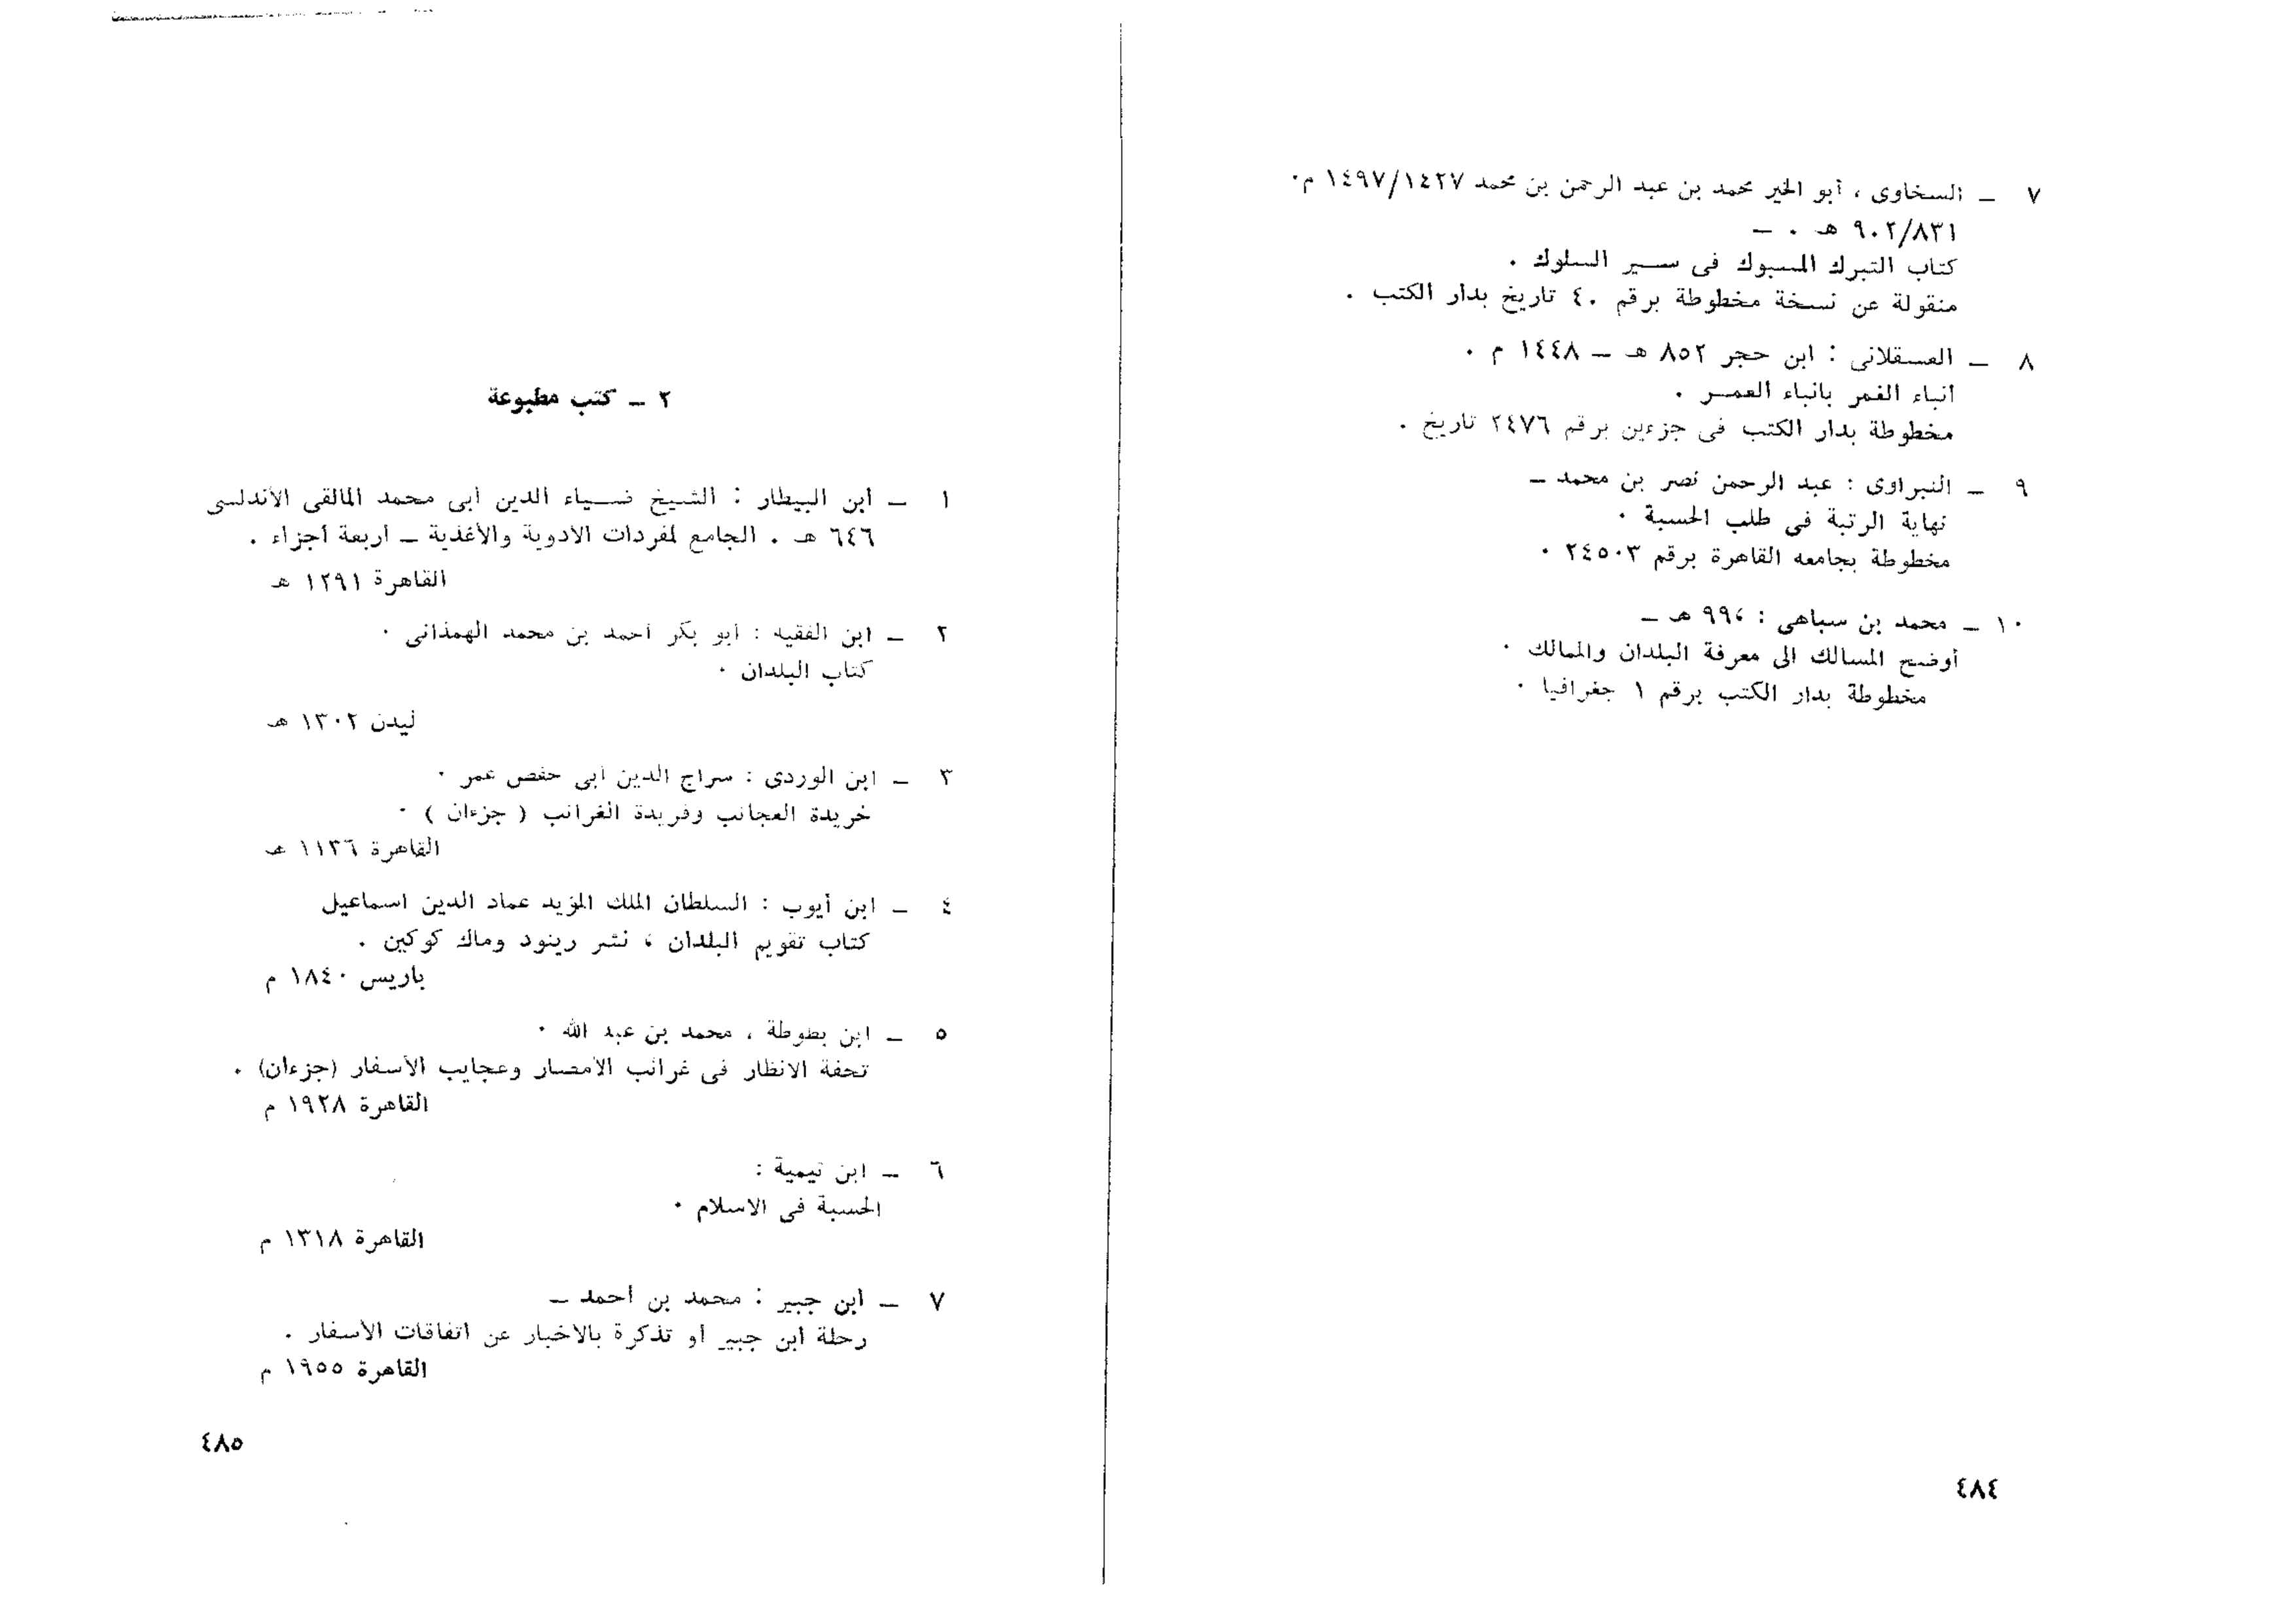 ٧ ــ السخاوى ، أبو الخير محمد بن عبد الرحمن بن محمد ١٤٩٧/١٤٢٧ م٠
٩٠٢/٨٣١ هـ . ــ
كتاب التبرك المسبوك فى ســير السلوك .
منقولة عن نسخة مخطوطة برقم ٤٠ تاريخ بدار الكتب .
٨ ــ العسقلانى : ابن حجر ٨٥٢ هـ ــ ١٤٤٨ م .
أنباء الغمر بانباء العمــر .
مخطوطة بدار الكتب فى جزءين برقم ٢٤٧٦ تاريخ .
٩ ــ النبراوى : عبد الرحمن نصر بن محمد ــ
نهاية الرتبة فى طلب الحسبة .
مخطوطة بجامعه القاهرة برقم ٢٤٥٠٣ .
١٠ ــ محمد بن سباهى : ٩٩ هـ ــ
أوضح المسالك الى معرفة البلدان والممالك .
مخطوطة بدار الكتب برقم ١ جغرافيا .
٤٨٤
٢ ــ كتب مطبوعة
١ ــ ابن البيطار : الشيخ ضــياء الدين أبى محمد المالقى الأندلسى
٦٤٦ هـ . الجامع لمفردات الادوية والأغذية ــ أربعة أجزاء .
القاهرة ١٢٩١ هـ
٢ ــ ابن الفقيه : أبو بكر أحمد بن محمد الهمذانى .
كتاب البلدان .
ليدن ١٣٠٢ هـ
٣ ــ ابن الوردى : سراج الدين أبى حفص عمر .
خريدة العجائب وفريدة الغرائب ( جزءان ) .
القاهرة ١١٣٦ هـ
٤ ــ ابن أيوب : السلطان الملك المؤيد عماد الدين اسماعيل
كتاب تقويم البلدان ، نشر رينود وماك كوكين .
باريس ١٨٤٠ م
٥ ــ ابن بطوطة ، محمد بن عبد الله .
تحفة الانظار فى غرائب الأمصار وعجايب الأسفار (جزءان) .
القاهرة ١٩٢٨ م
٦ ــ ابن تيمية :
الحسبة فى الاسلام .
القاهرة ١٣١٨ م
٧ ــ ابن جبير : محمد بن أحمد ــ
رحلة ابن جبير أو تذكرة بالاخبار عن اتفاقات الأسفار .
القاهرة ١٩٥٥ م
٤٨٥